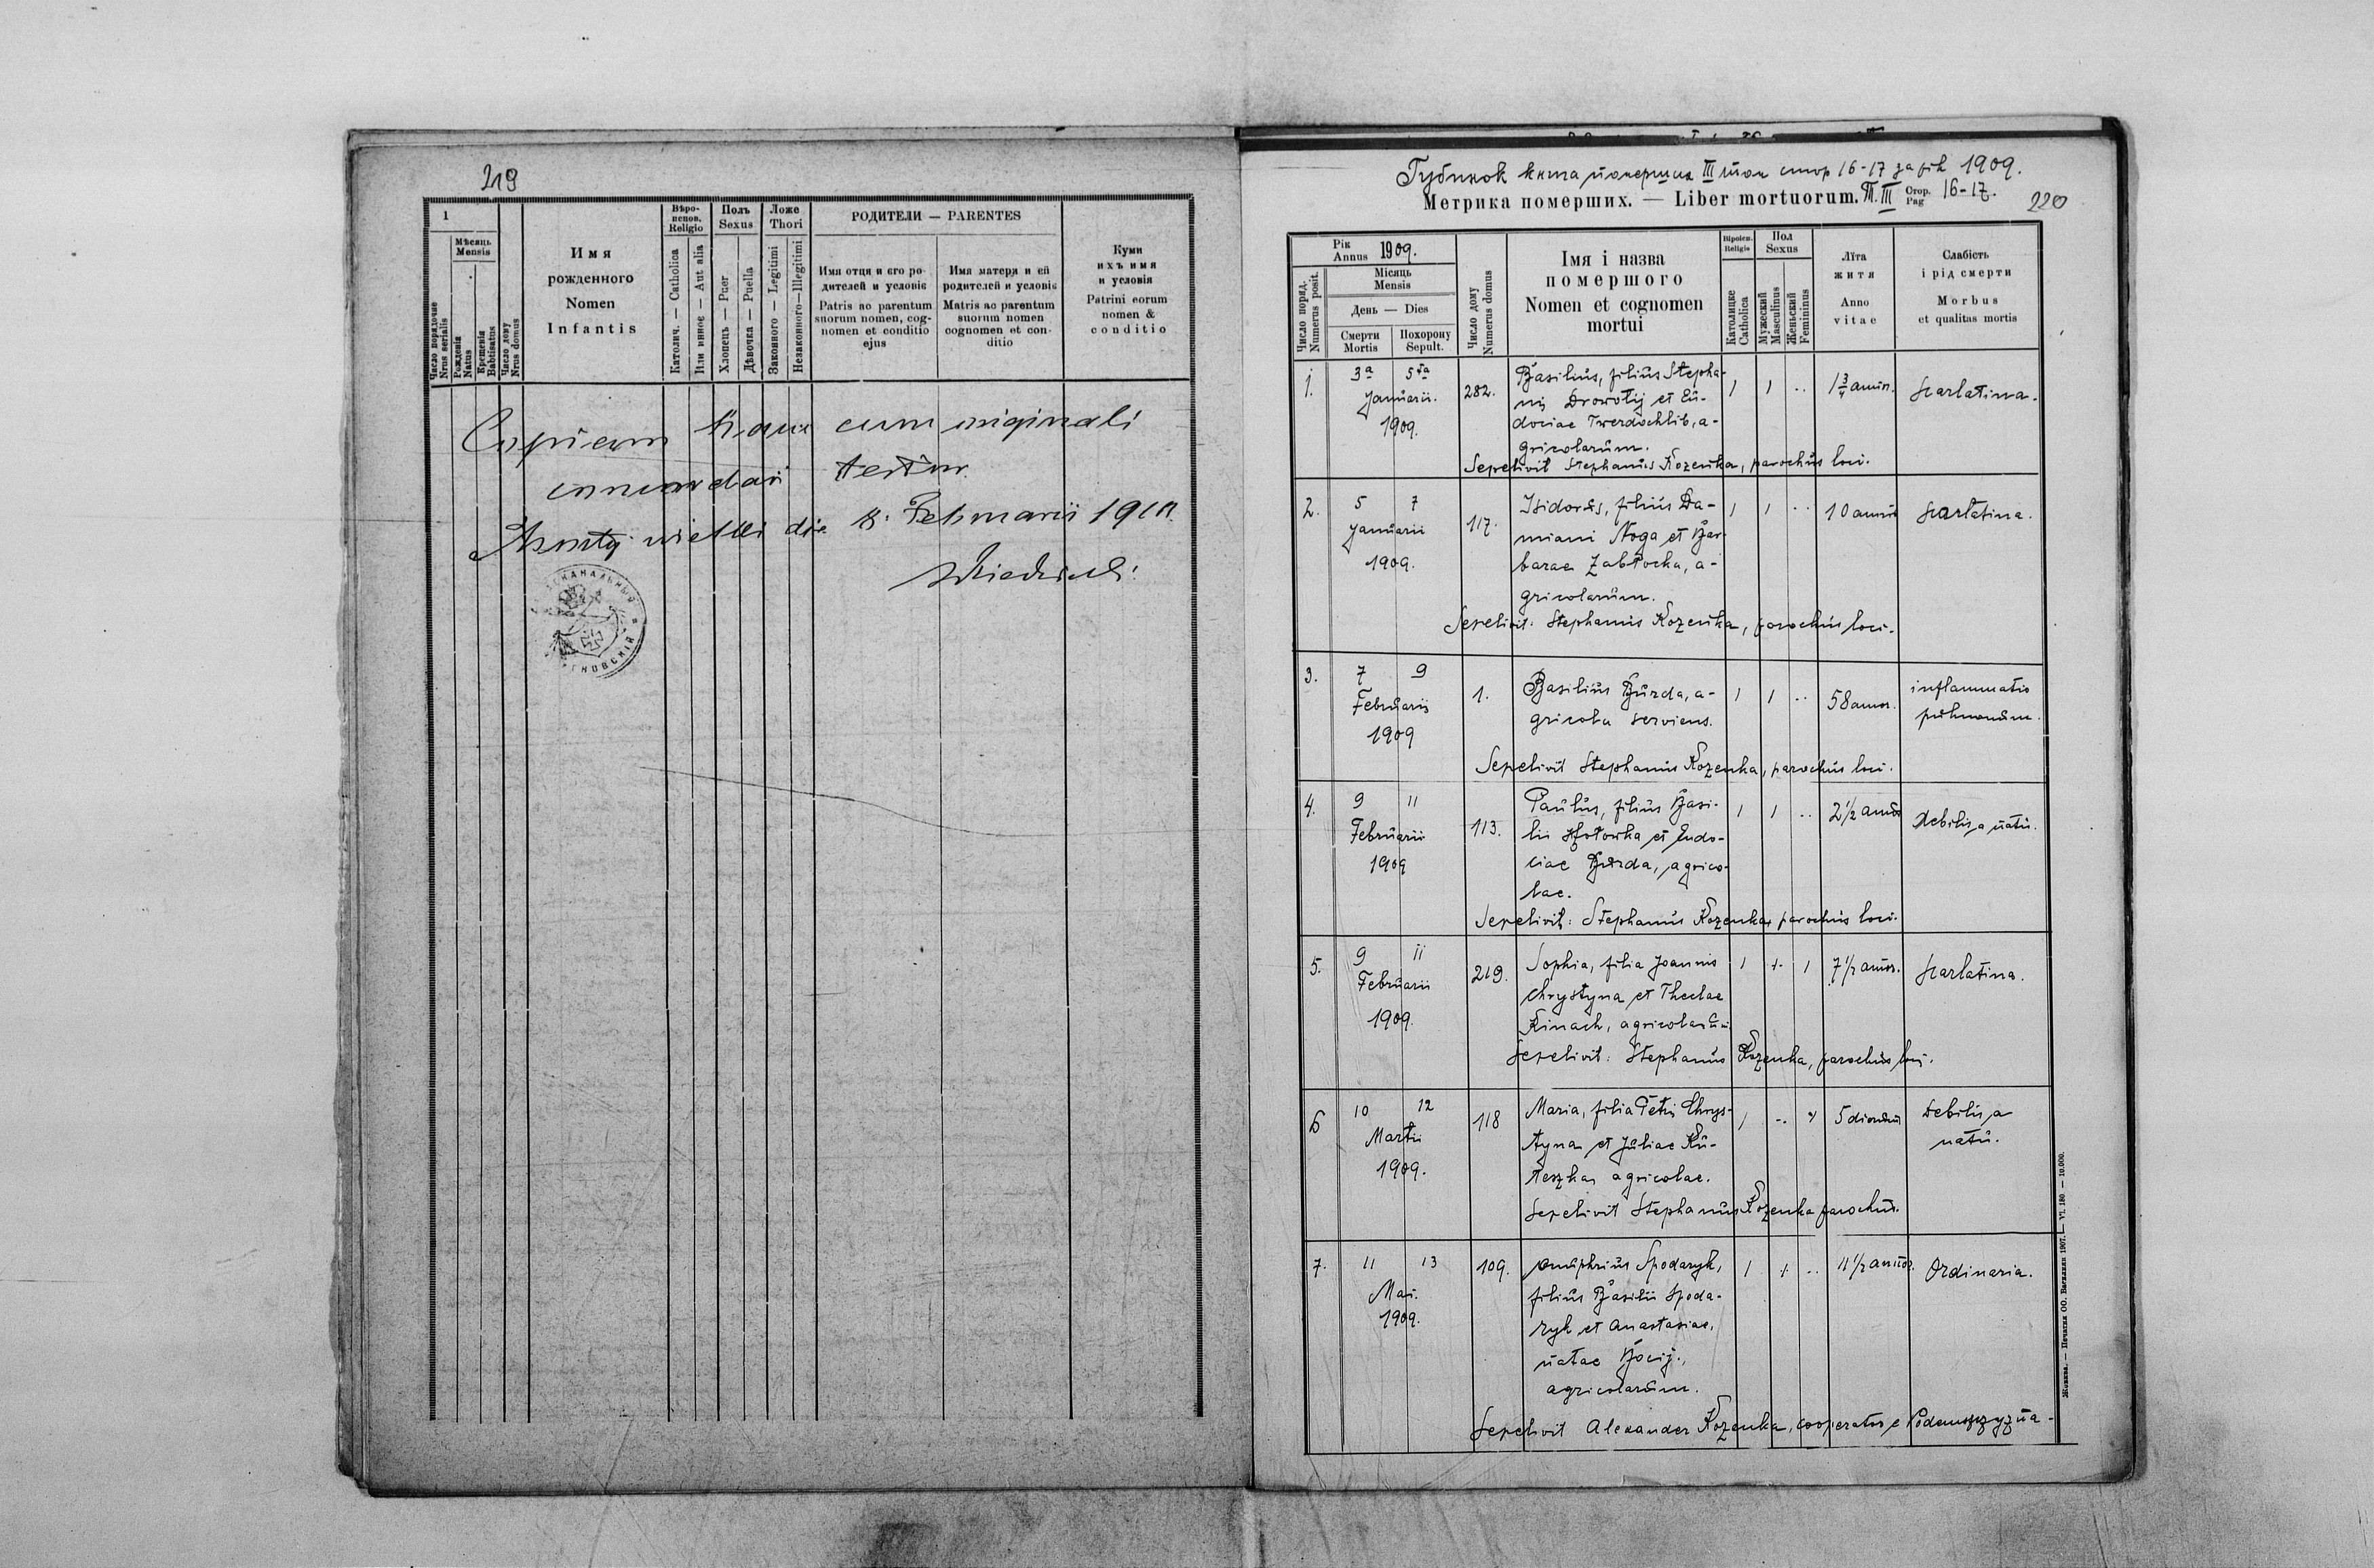 219
1
Мѣсяць
Mensis
Число порядочне
Nrus serialis
Рожденія
Natus
Крещенія
Babtisatus
Число дому
Nrus domus
Имя
рожденного
Nomen
Infantis
Вѣро-
испов.
Religio
Католич. — Catholica
Или инное — Aut alia
Полъ
Sexus
Хлопець — Puer
Дѣвочка — Puella
Ложе
Thori
Законного — Legitimi
Незаконного — Illegitimi
РОДИТЕЛИ — PARENTES
Имя отця и єго ро-
дителей и условіє
Patris ac parentum
suorum nomen, cog-
nomen et conditio
ejus
Имя матери и ей
родителей и условіє
Matris ac parentum
suorum nomen
cognomen et con-
ditio
Куми
ихъ имя
и условія
Patrini eorum
nomen &
conditio
Copiam hanc cum originali
concordari testor
die 18. Februarii 1910.
Губинок книга померших III том стор 16-17 за рік 1909.
Метрика померших. — Liber mortuorum. T. III Стор. Pag 16-17.
220
Рік
Annus 1909.
Місяць
Mensis
День — Dies
Число поряд.
Numerus posit.
Смерти
Mortis
Похорону
Sepult.
Число дому
Numerus domus
Імя і назва
помершого
Nomen et cognomen
mortui
Віроісп.
Religio
Католицке
Catholica
Пол
Sexus
Мужеский
Masculinus
Женьский
Femininus
Лїта
житя
Anno
vitae
Слабість
і рід смерти
Morbus
et qualitas mortis
1. 3a 5ta Januarii. 1909. 282.
Basilius, filius Stepha-
ni Drowotij et Eu-
dociae Twerdochlib, a-
gricolarum.
1 1 .. 1 3/4 annor. Scarlatina.
Sepelivit Stephanus Kozenka, parochus loci.
2. 5 7 Januarii 1909. 117.
Isidorus, filius Da-
miani Noga et Bar-
barae Zabłocka, a-
gricolarum.
1 1 .. 10 annor Scarlatina.
Sepelivit: Stephanus Kozenka, parochus loci.
3. 7 9 Februarii 1909 1.
Basilius Burda, a-
gricola serviens.
1 1 .. 58 annor. inflammatio
pulmonum.
Sepelivit Stephanus Kozenka, parochus loci.
4. 9 11 Februarii 1909 113.
Paulus, filius Basi-
lii et Eudo-
ciae Burda, agrico-
lae.
1 1 .. 2 1/2 annor debilis, a natu.
Sepelivit: Stephanus Kozenka, parochus loci.
5. 9 11 Februarii 1909. 219.
Sophia, filia Joannis
Chrystyna et Theclae
Kinach, agricolarum
1 .. 1 7 1/2 annor. Scarlatina.
Sepelivit: Stephanus Kozenka, parochus loci.
6 10 12 Martii 1909. 118
Maria, filia Petri Chrys-
tyna et Juliae Ku-
teszka, agricolae.
1 .. 1 5 dierum Debilis, a
natu.
Sepelivit Stephanus Kozenka parochus.
7. 11 13 Mai. 1909. 109.
Onuphrius Spodaryk,
filius Basilii Spoda-
ryk et Anastasiae,
natae
agricolarum.
1 1 .. 11 1/2 annor. Ordinaria.
Sepelivit Alexander Kozenka, cooperator e
Жовква. — Печатня ОО. Василиян 1907. — VI. 180 — 10.000.